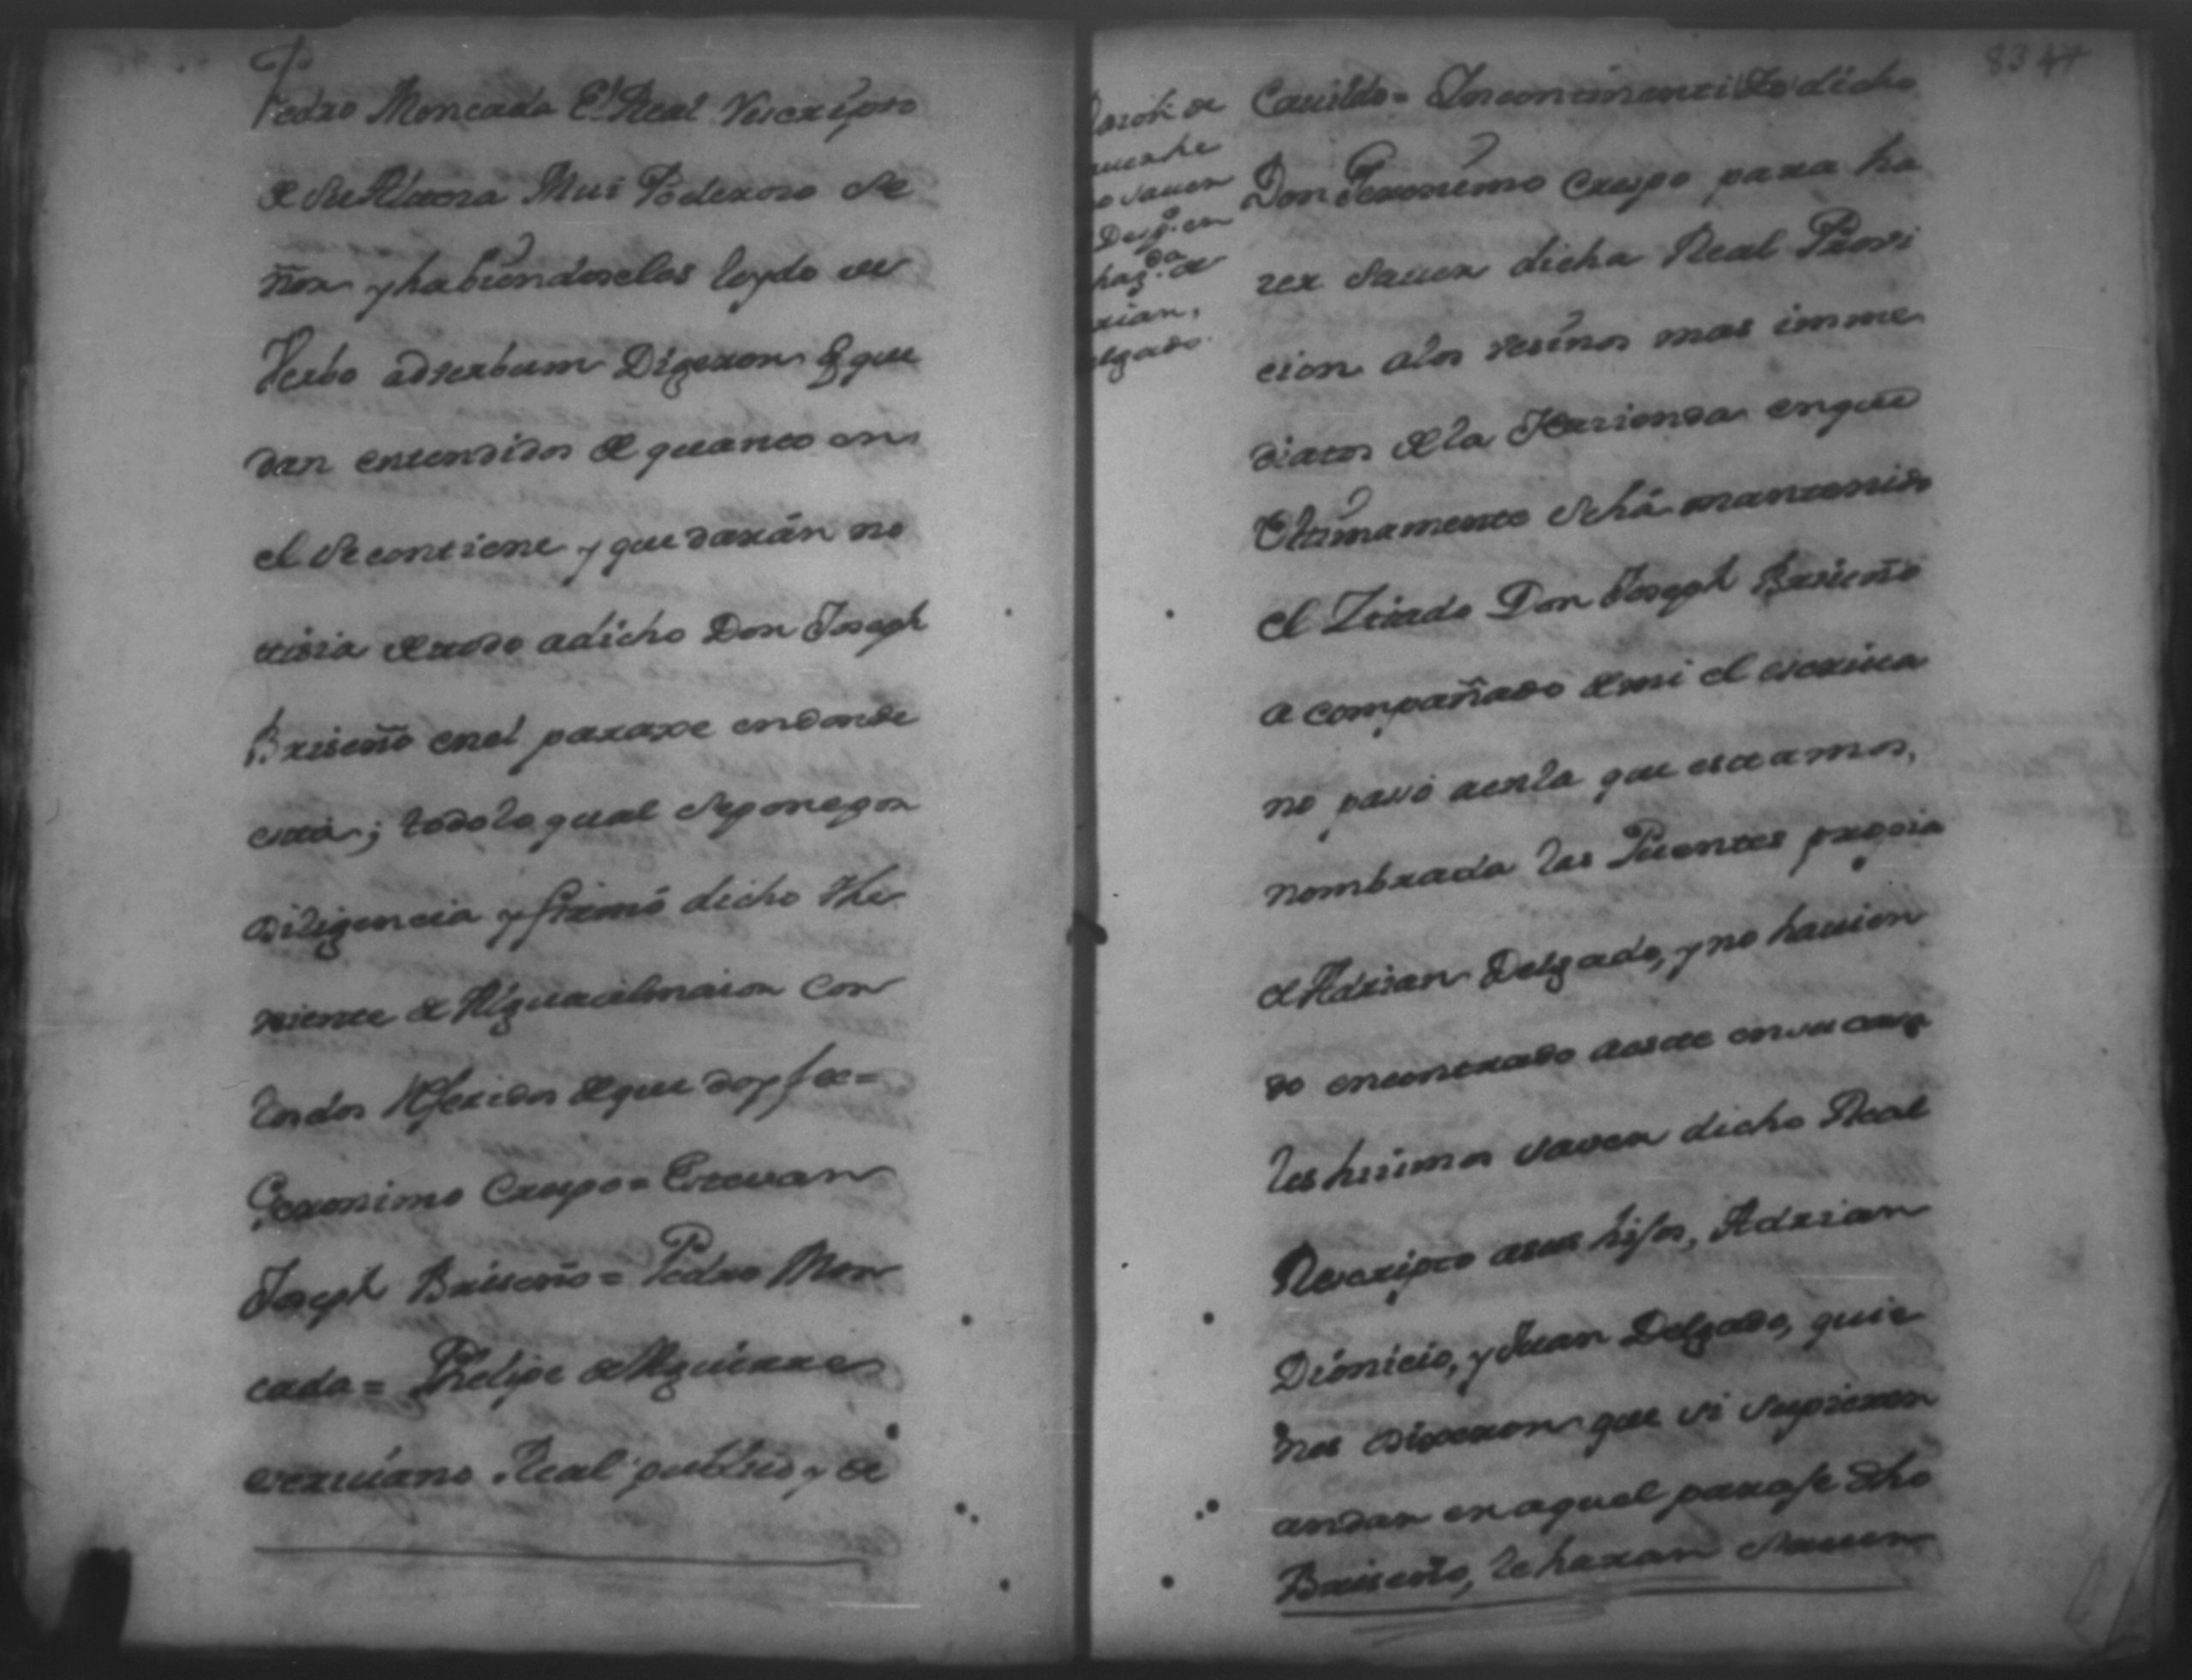 Pedro Moncada El Real Rescripto
de Su Alteza Mui Poderoso Se
ñor y habiendoselos leydo de
Verbo adverbum Digeron Que
dan entendidos de quanto en
el se contiene y que darán no
ticia de todo a dicho Don Joseph
Briseño en el paraxe en donde
está; todo lo qual se pone por
Diligencia y firmó dicho The
niente de Alguacil maior con
los dos Referidos de que doy fee =
Geronimo Crespo = Estevan
Joseph Briseño = Pedro Mon
cada = Phelipe de Aguirre
escriuano Real publico y de
83 47
de
saver
en
haz.da de
rian,
elgado.
Cauildo = Yncontinenti Yo dicho
Don Geronimo Crespo para ha
zer sauer dicha Real Provi
cion a los vesinos mas imme
diatos de la Hazienda en que
Ultimamente se há mantenido
el Zitado Don Joseph Briseño
acompañado de mi el escriua
no pasó a esta que estamos,
nombrada las Puentes propia
de Adrian Delgado, y no hauien
do encontrado a este en su casa
les hisimos saver dicho Real
Rescripto a sus hijos, Adrian
Dionicio, y Juan Delgado, quie
nes dixeron que si supieren
andar en aquel paraje dho
Briseño, le haran sauer